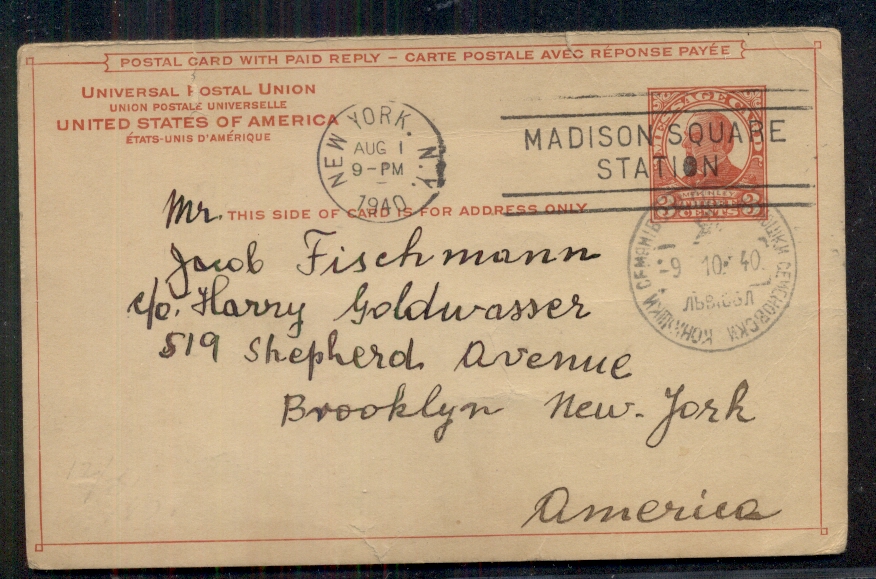 POSTAL CARD WITH PAID REPLY – CARTE POSTALE AVEC RÉPONSE PAYÉE
UNIVERSAL POSTAL UNION
UNION POSTALE UNIVERSELLE
UNITED STATES OF AMERICA
ÉTATS-UNIS D'AMÉRIQUE
NEW YORK, N.Y.
AUG 1
9-PM
1940
MADISON SQUARE
STATION
MESSAGE CARD
3 CENTS 3
THIS SIDE OF CARD IS FOR ADDRESS ONLY
9 10 40
Mr.
Jacob Fischmann
c/o. Harry Goldwasser
519 Shepherd Avenue
Brooklyn New-York
America